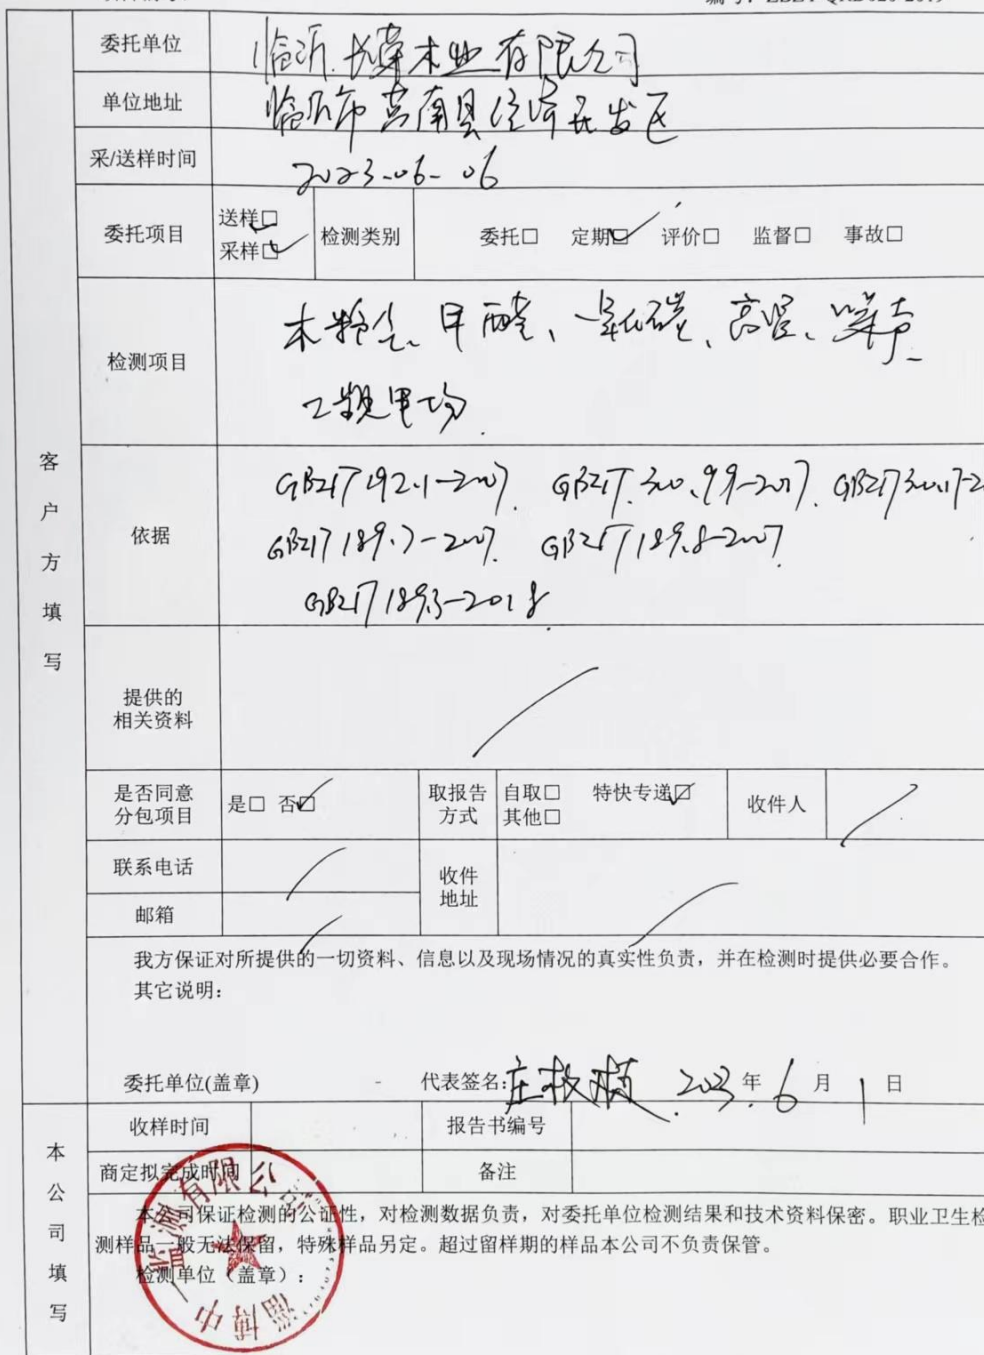 委托单位 临沂长荣木业有限公司
单位地址 临沂市莒南县经济开发区
采/送样时间 2023-06-06
委托项目 送样□ 采样☑ 检测类别 委托□ 定期☑ 评价□ 监督□ 事故□
检测项目 木粉尘、甲醛、一氧化碳、高温、噪声
工频电场
客户方填写
依据 GBZ/T192.1-2007 GBZ/T300.99-2017 GBZ/T300.
GBZ/T189.7-2007 GBZ/T189.8-2007
GBZ/T189.3-2018
提供的
相关资料
是否同意分包项目 是□ 否☑ 取报告方式 自取□ 特快专递☑ 其他□ 收件人
联系电话 收件地址
邮箱
我方保证对所提供的一切资料、信息以及现场情况的真实性负责，并在检测时提供必要合作。
其它说明：
委托单位(盖章) 代表签名: 2023年6月1日
本公司填写
收样时间 报告书编号
商定拟完成时间 备注
本公司保证检测的公证性，对检测数据负责，对委托单位检测结果和技术资料保密。职业卫生检
测样品一般无法保留，特殊样品另定。超过留样期的样品本公司不负责保管。
检测单位（盖章）：